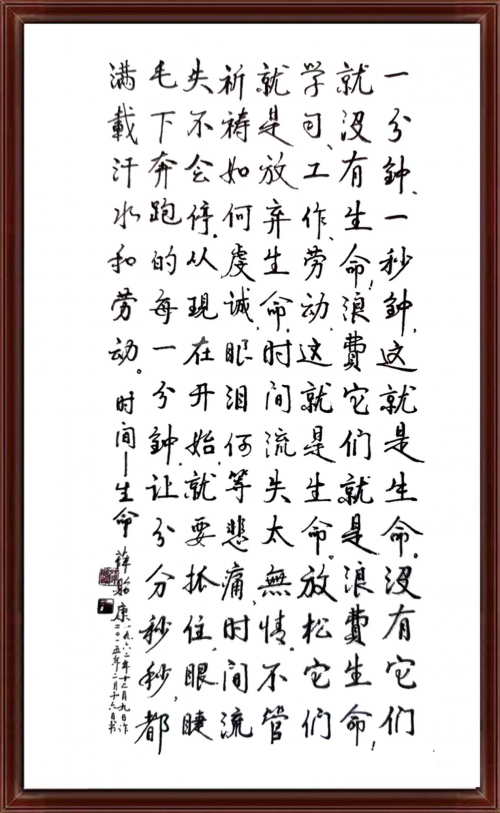 一分鈡、一秒鈡,这就是生命。没有它们
就没有生命!浪費它们就是浪費生命!
学习、工作、劳动,这就是生命。放松它们
就是放弃生命。时间流失太無情。不管
祈祷如何虔诚,眼泪何等悲痛,时间流
失不会停。从現在开始,就要抓住眼睫
毛下奔跑的每一分鈡,让分分秒秒,都
满載汗水和劳动。时间—生命 薛贻康
一九六二年十二月九日作
二〇一五年二月十六日书